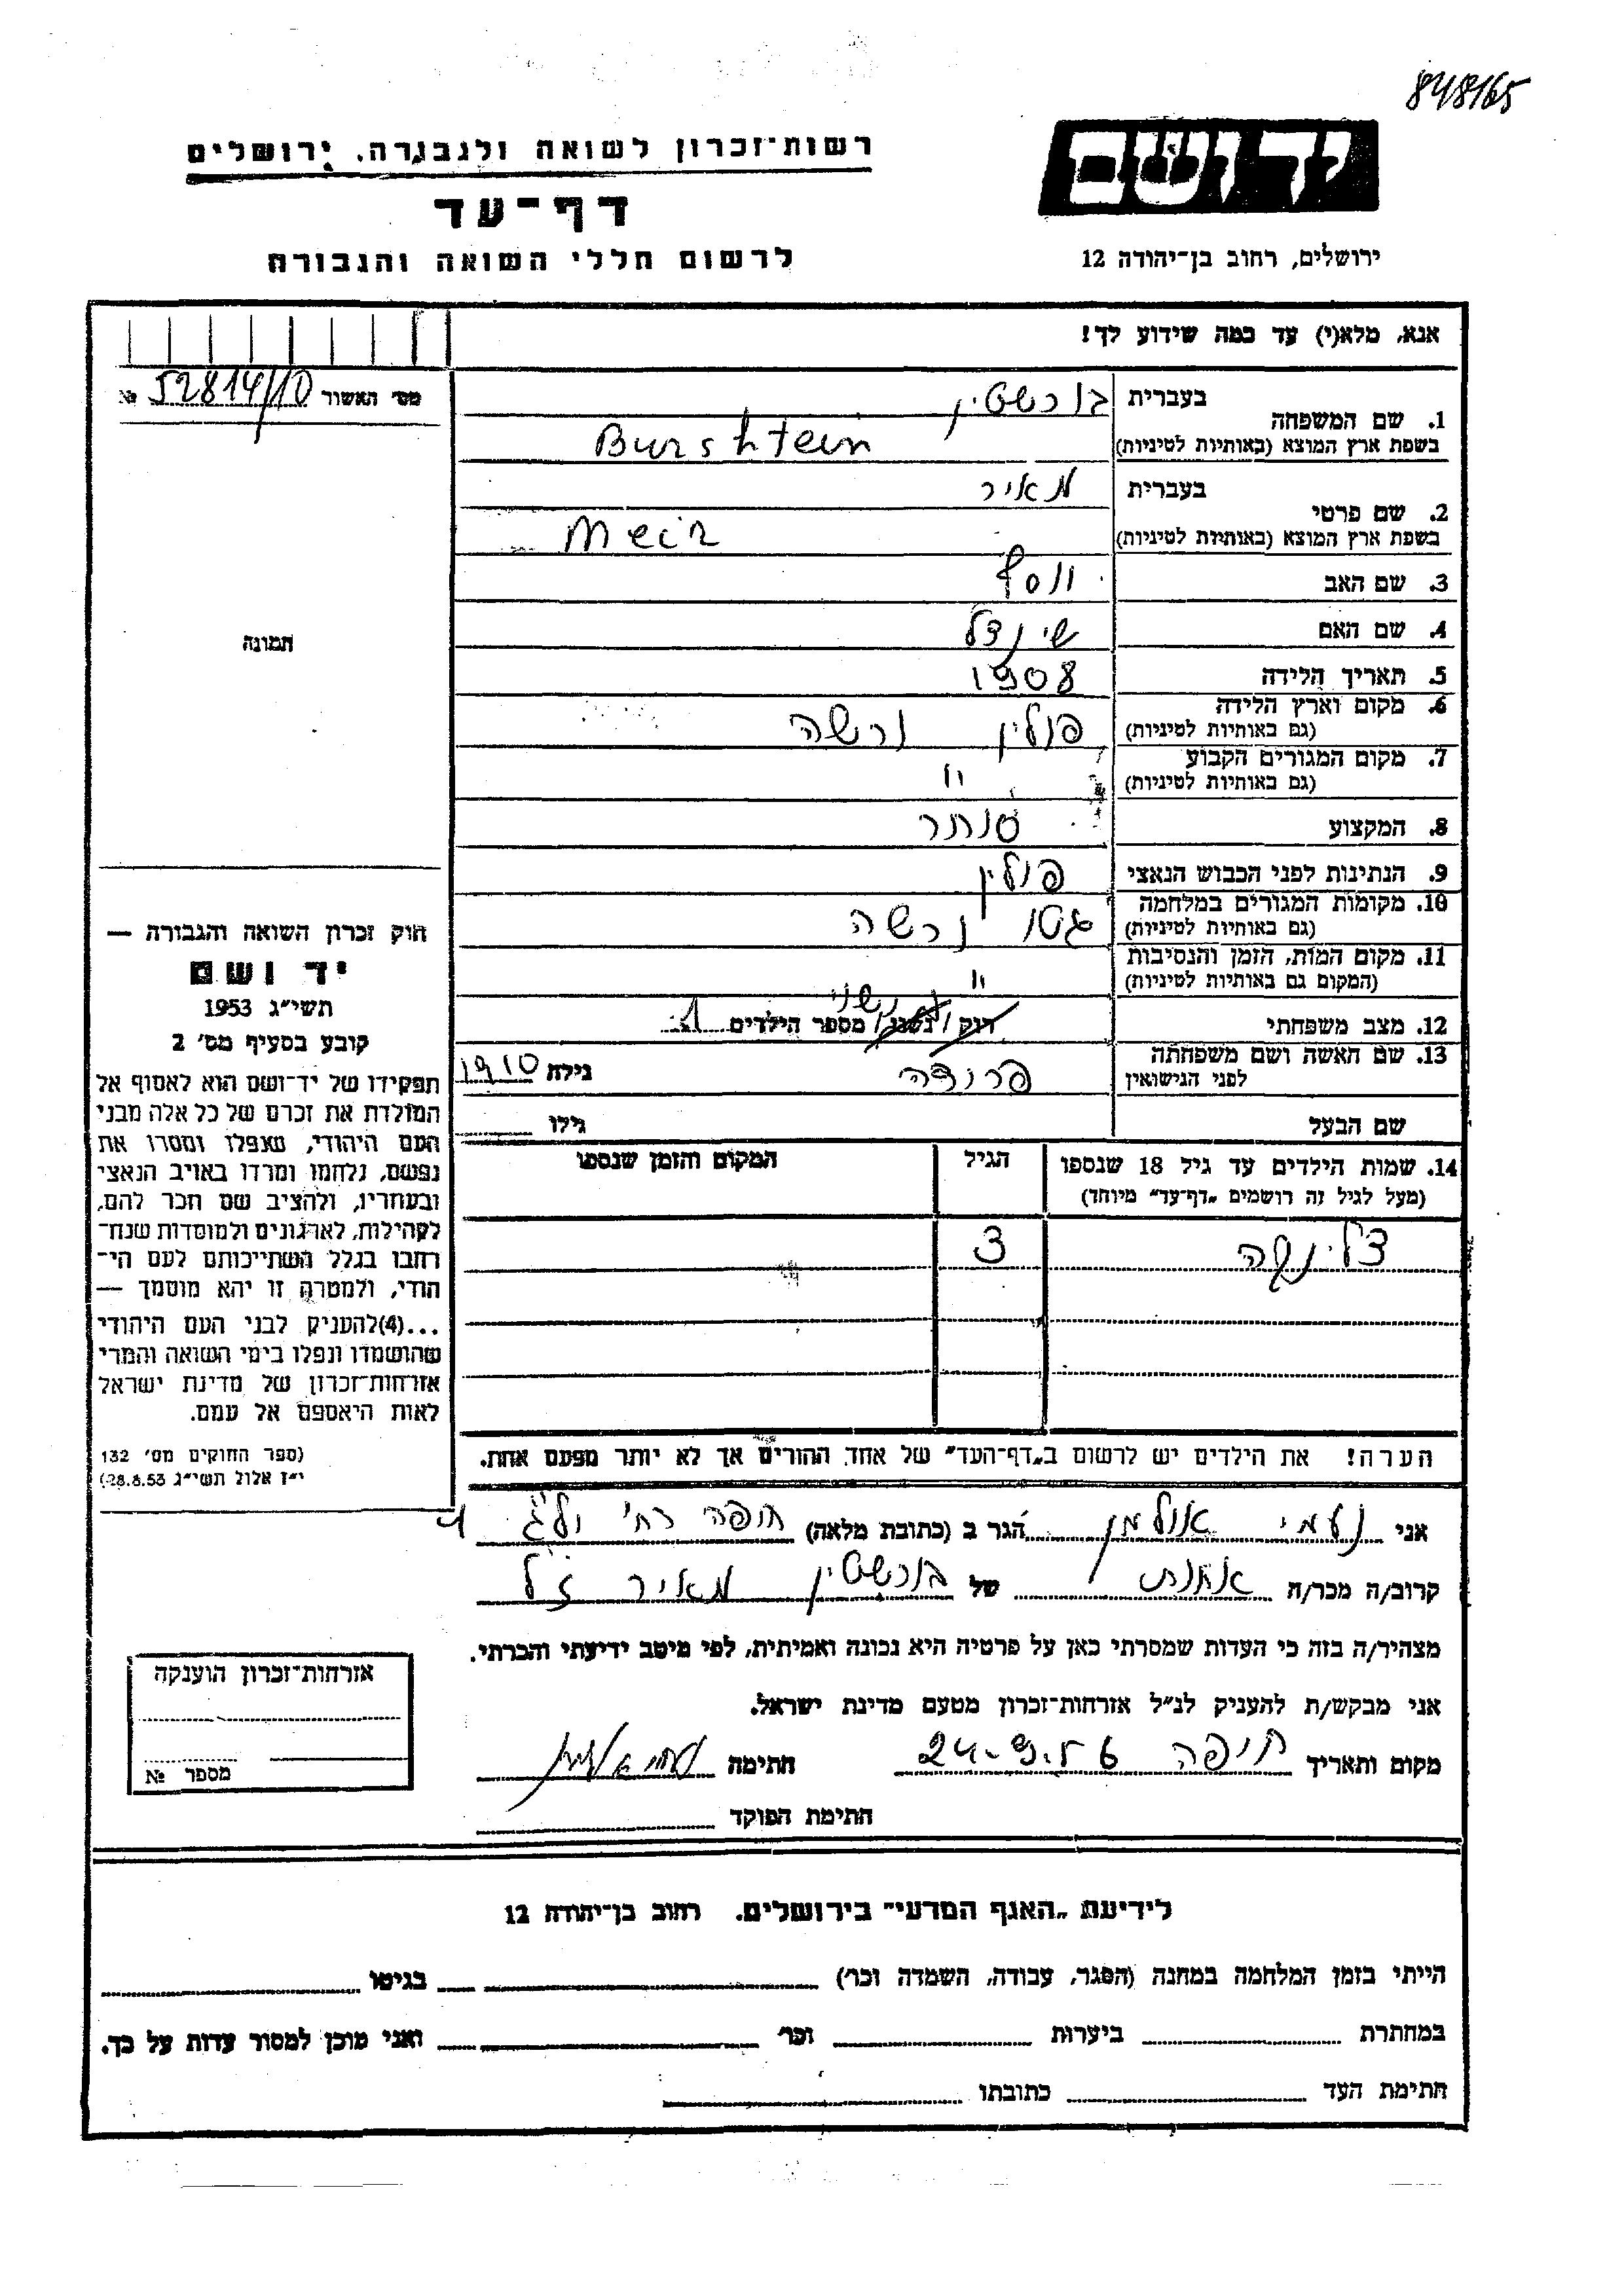 848165
יד ושם
רשות־זכרון לשואה ולגבורה, ירושלים
דף־עד
לרשום חללי השואה והגבורה
ירושלים, רחוב בן־יהודה 12
אנא, מלא(י) עד כמה שידוע לך!
מס׳ האשור 52814/10 №
תמונה
1. שם המשפחה
בעברית בורשטין
בשפת ארץ המוצא (באותיות לטיניות) Burshtein
2. שם פרטי
בעברית מאיר
בשפת ארץ המוצא (באותיות לטיניות) Meir
3. שם האב יוסף
4. שם האם שינדל
5. תאריך הלידה 1908
6. מקום וארץ הלידה פולין ורשה
(גם באותיות לטיניות)
7. מקום המגורים הקבוע "
(גם באותיות לטיניות)
8. המקצוע סוחר
9. הנתינות לפני הכבוש הנאצי פולין
10. מקומות המגורים במלחמה גטו ורשה
(גם באותיות לטיניות)
11. מקום המות, הזמן והנסיבות "
(המקום גם באותיות לטיניות)
12. מצב משפחתי רוק / נשוי / מספר הילדים 1
נשוי
13. שם האשה ושם משפחתה פרומה גילה 1910
לפני הנישואין
שם הבעל גילו
14. שמות הילדים עד גיל 18 שנספו הגיל המקום והזמן שנספו
(מעל לגיל זה רושמים „דף־עד״ מיוחד)
3
הערה! את הילדים יש לרשום ב„דף־העד״ של אחד ההורים אך לא יותר מפעם אחת.
חוק זכרון השואה והגבורה —
יד ושם
תשי״ג 1953
קובע בסעיף מס׳ 2
תפקידו של יד־ושם הוא לאסוף אל
המולדת את זכרם של כל אלה מבני
העם היהודי, שנפלו ומסרו את
נפשם, נלחמו ומרדו באויב הנאצי
ובעוזריו, ולהציב שם וזכר להם,
לקהילות, לארגונים ולמוסדות שנח־
רבו בגלל השתייכותם לעם הי־
הודי, ולמטרה זו יהא מוסמך —
...(4)להעניק לבני העם היהודי
שהושמדו ונפלו בימי השואה והמרי
אזרחות־זכרון של מדינת ישראל
לאות היאספם אל עמם.
(ספר החוקים מס׳ 132
י״ז אלול תשי״ג 28.8.53)
אני נעמי אולמן הגר ב (כתובת מלאה) חיפה רח׳
קרוב/ה מכר/ה אחות של בורשטין מאיר ז״ל
מצהיר/ה בזה כי העדות שמסרתי כאן על פרטיה היא נכונה ואמיתית, לפי מיטב ידיעתי והכרתי.
אני מבקש/ת להעניק לנ״ל אזרחות־זכרון מטעם מדינת ישראל.
מקום ותאריך חיפה 24. חתימה
חתימת הפוקד
אזרחות־זכרון הוענקה
מספר №
לידיעת „האגף המדעי״ בירושלים. רחוב בן־יהודה 12
הייתי בזמן המלחמה במחנה (הסגר, עבודה, השמדה וכו׳) בגיטו
במחתרת ביערות וכו׳ ואני מוכן למסור עדות על כך.
חתימת העד כתובתו